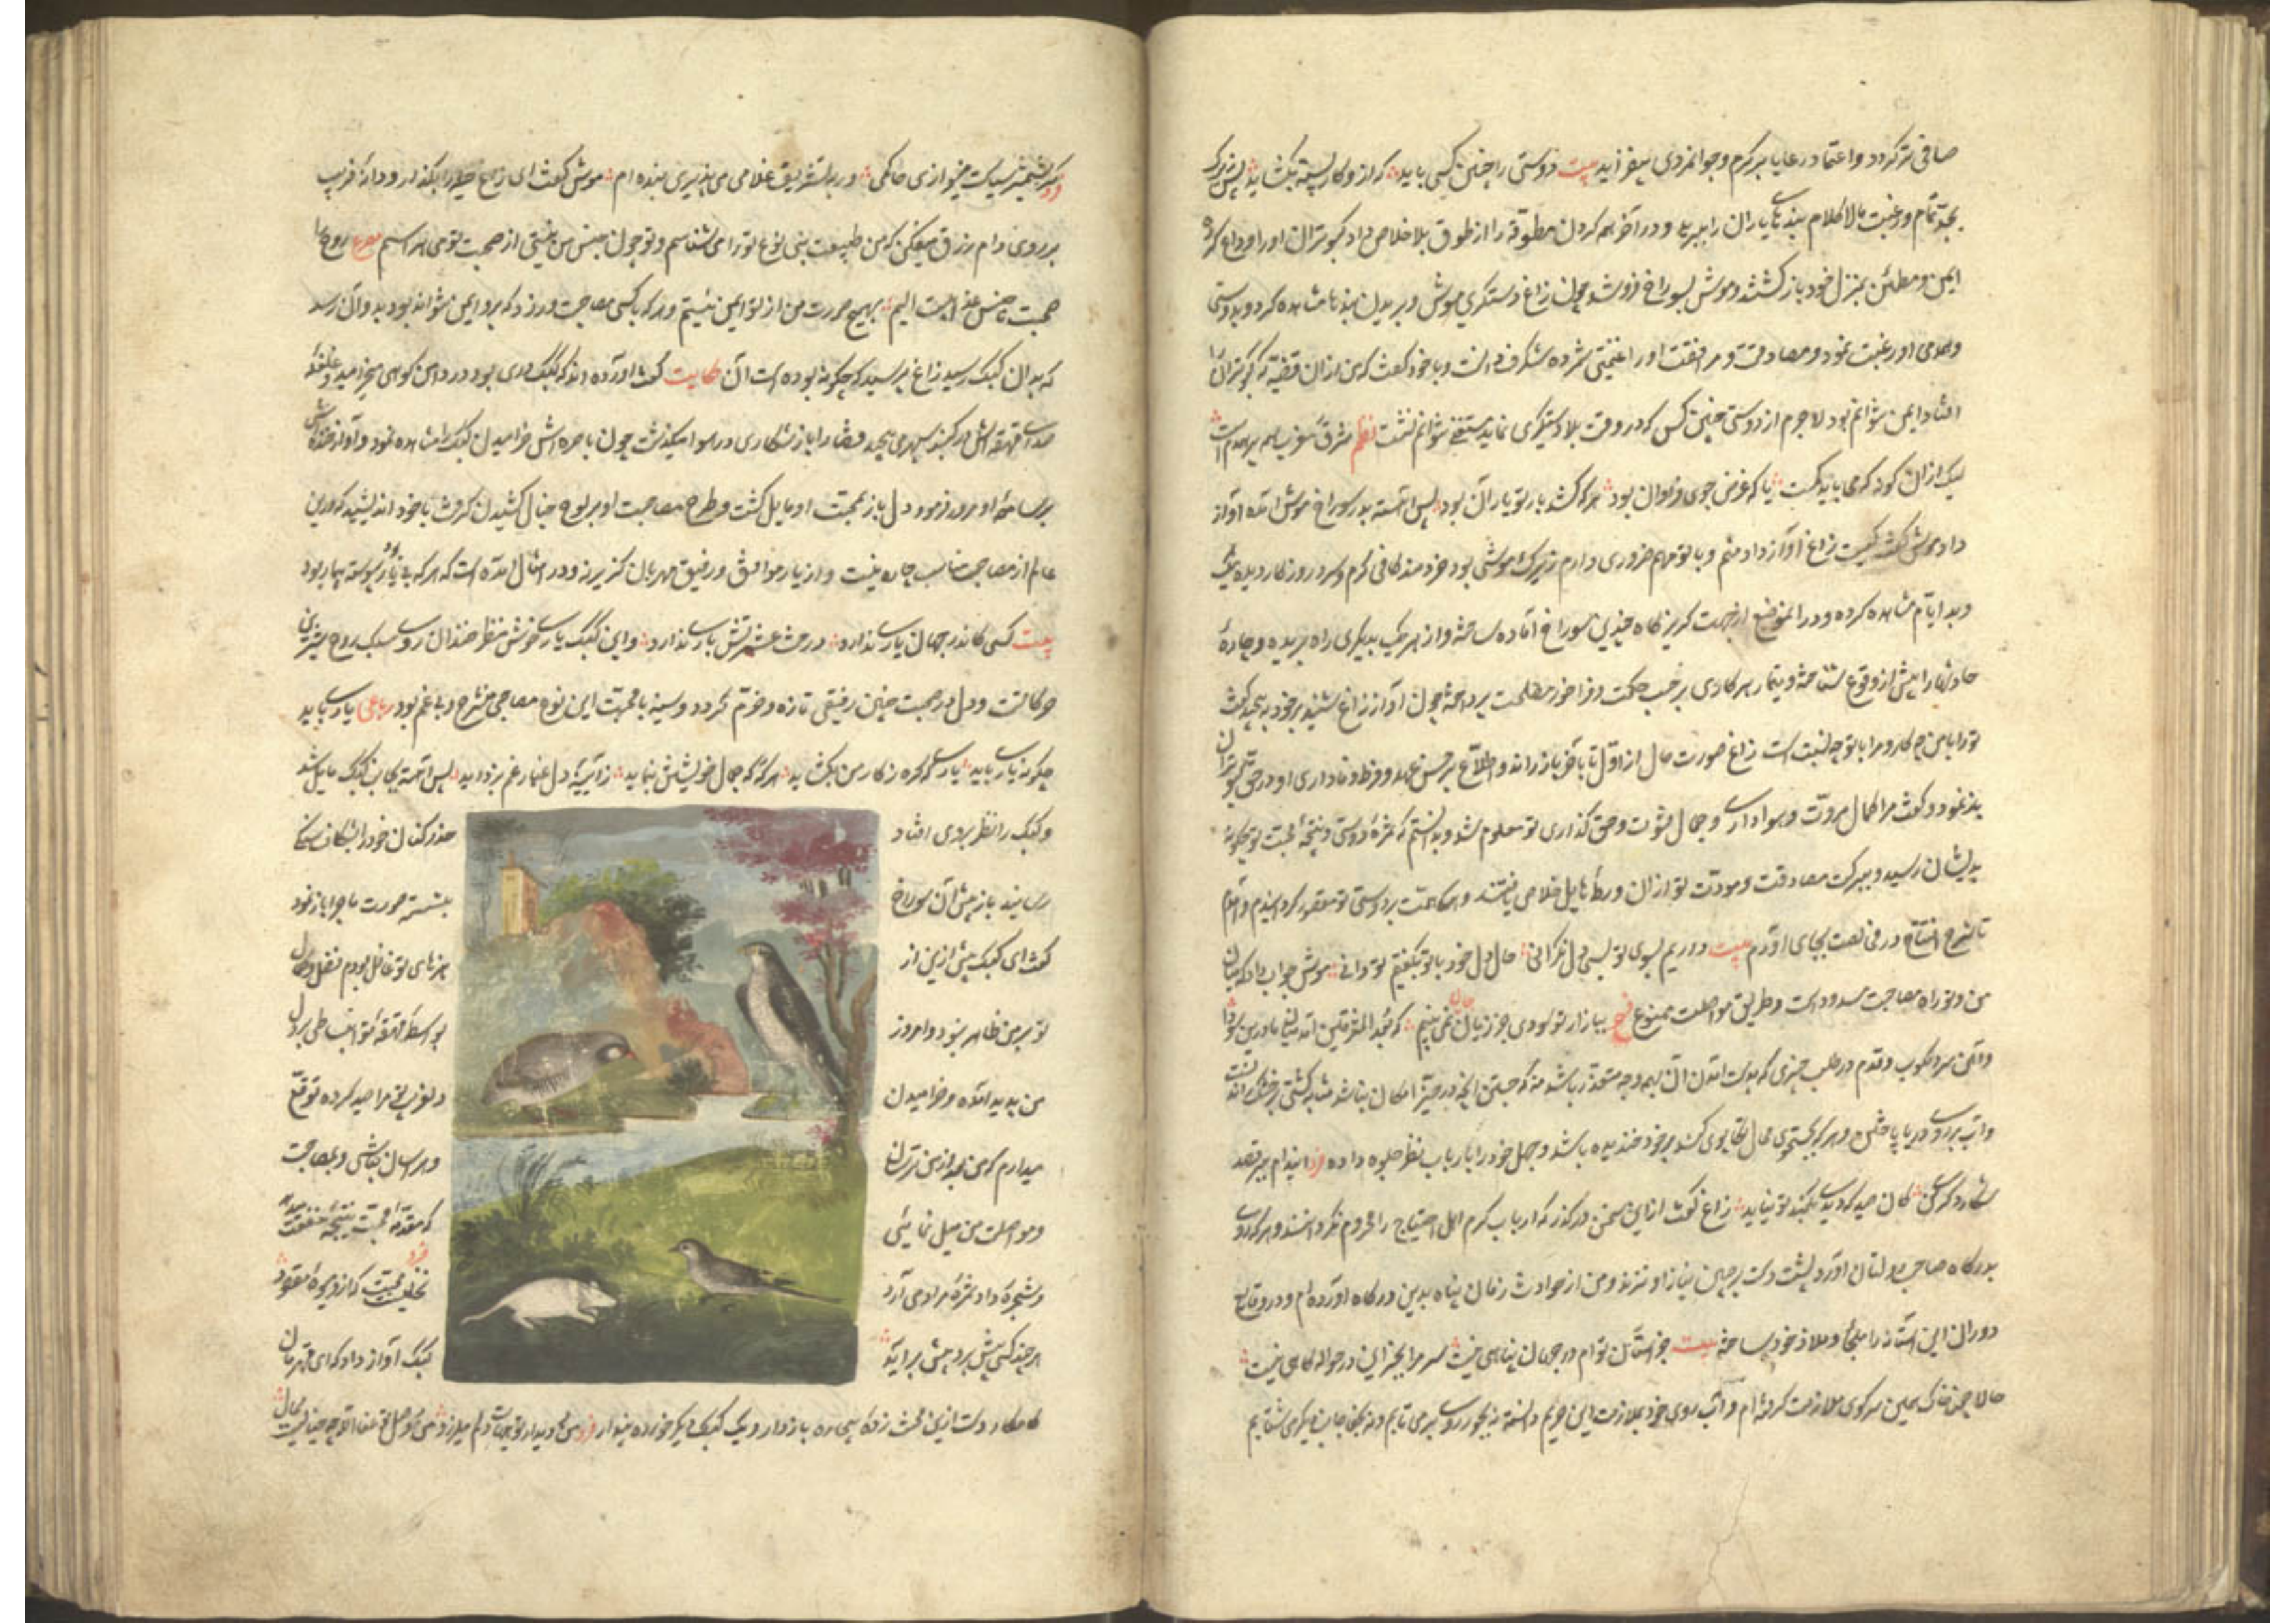 صافی تر گردد و اعتماد رعایا بر کرم و جوانمردی بیفزاید بیت دوستی را چنین کسی باید که ازو کار بسته بگشاید پس زیرک
بجد تمام و رغبت مالا کلام بندهای یاران را ببرید و در آخر همه گردن مطوقه را از طوق بلا خلاص داد کبوتران او را وداع کرده
ایمن و مطمئن بمنزل خود باز گشتند و موش بسوراخ فرو شد چون زاغ دستگیری موش و بریدن بندها مشاهده کرد بدوستی
و همدمی او رغبت نمود و مصادقت و مرافقت او را غنیمتی شمرده شگرف دانست و با خود گفت که من از آن قضیه که کبوتران را
افتاد ایمن نتوانم بود لاجرم از دوستی چنین کس که در وقت بلا دستگیری نماید مستغنی نتوانم نشست نظم مشرق مغرب همه پر همدم است
لیک از آن گونه که می باید کمست یار که غرض جوی و هوان بود هر که کشد بار تو یار آن بود پس آهسته بدر سوراخ موش آمده آواز
داد موش گفت کیست زاغ آواز داد منم و با تو مهم ضروری دارم زیرک موشی بود خردمند کافی گرم و سرد روزگار دیده نیک
و بد ایام مشاهده کرده و در آن موضع از جهت گریزگاه چندین سوراخ آماده ساخته و از هر یک بدیگری راه بریده و چارهٔ
حادثها را پیش از وقوع شناخته و تیمار هر کاری بر حسب حکمت و فراخور مصلحت پرداخته چون آواز زاغ شنید بر خود پیچید گفت
ترا با من چه کار و مرا با تو چه نسبت است زاغ صورت حال از اول تا بآخر باز راند و اطلاع بر حسن عهد و فرط وفاداری او در حق کبوتران
باز نمود و گفت مرا کمال مروت و هواداری و جمال فتوت و حق گذاری تو معلوم شد و بدانستم که ثمرهٔ دوستی و نتیجهٔ محبت تو چگونه
بدیشان رسید و ببرکت مصادقت و مودت تو از آن ورطهٔ هایل خلاص یافتند و همگی همت بر دوستی تو مقصور گردانیدم و آمدم
تا شرح افتتاح در فی نعت بجای آورم بیت داریم بسوی تو بسی دل نگرانی حال دل خود با تو بگفتیم تو دانی موش جواب داد که میان
من و تو راه مصاحبت مسدود است و طریق مواصلت ممنوع بیازار تو سودی جز زیان جان نمی بینم که بعد المشرقین آمد میان ما درین سودا
و آهن سرد مکوب و قدم در طلب چیزی که بدست آمدن آن بهمه وجه متعذر باشد منه که جستن آنچه در حیز امکان نباشد مشابه کشتی بر خشک راندنست
و اسب بر روی دریا تاختن و هر که بجستجوی محال تکاپوی کند بر خود خندیده باشد و جهل خود را بارباب نظر جلوه داده فرد اندام ببر قصد
شکار دگری کن کان صید که دیدی بکمند تو نیاید زاغ گفت ازین سخن در گذر که ارباب کرم اهل احتیاج را محروم نگردانند و هر که روی
بدرگاه صاحب دولتان آورد پشت دست بر جبین نیاز او نزند و من از حوادث زمان پناه بدین درگاه آورده ام و در وقایع
دوران این آستانه را ملجا و ملاذ خود ساخته بیت جز آستان توام در جهان پناهی نیست سر مرا بجز این در حواله گاهی نیست
حالا چون خاک بر همین سر کوی ملازمت گزیده ام و آب روی خود ملازمت این حریم دانسته نه بجور روی بر می تابم و نه بجفا جانب دیگر می شتابم
گر بشمشیر سیاست میخوازی حاکمی ور بتشریف غلامی می پذیری بنده ام موش گفت ای زاغ حیله را بگذار و دانهٔ فریب
بر روی دام رزق میفکن که من طبیعت بنی نوع تو را می شناسم و تو چون جنس من نیستی از صحبت تو می هراسم مصرع روح را
صحبت ناجنس عذابیست الیم بهیچ صورت من از تو ایمن نیستم و هر که با کسی مصاحبت ورزد که برو ایمن نتواند بود بدو آن رسد
که بدان کبک رسید زاغ پرسید که چگونه بوده است آن حکایت گفت آورده اند که کبک دری بود در دامن کوهی میخرامید و غلغله
صدای قهقهه اش در گنبد سپهر می پیچید قضا را باز شکاری در هوا میگذشت چون باصره اش خرامیدن کبک مشاهده نمود و آواز خنده اش
بر سامعهٔ او مرور فرمود دل باز بصحبت او مایل گشت و طرح مصاحبت او بر لوح خیال کشیدن گرفت با خود اندیشید که درین
عالم از مصاحب مناسب چاره نیست و از یار موافق و رفیق مهربان گزیر نه و در امثال آمده است که هر که بی یار بود پیوسته بیمار بود
بیت کسی کاندر جهان یاری ندارد درخت عشرتش باری ندارد و این کبک یاری خوش منظر خندان روی سبک روح شیرین
حرکاتست و دل در صحبت چنین رفیقی تازه و خرم گردد و سینه با صحبت این نوع مصاحبی منشرح و بی غم بود رباعی یاری باید
چگونه یاری باید یاری که گره ز کار من بگشاید هر گه که جمال خویشتن بنماید ز آیینهٔ دل غبار غم بزداید پس آهسته بجانب کبک مایل شد
و کبک را نظر بر وی افتاد حذرکنان خود را بشکاف سنگی
رسانید باز پیش آن سوراخ بنشسته صورت ماجرا باز نمود
گفت ای کبک پیش ازین از هنرهای تو غافل بودم فضل و کمال
تو بر من ظاهر نبود و امروز بواسطهٔ قهقههٔ تو انبساطی بر دل
من پدید آمده و خرامیدن دلفریب تو مرا صید کرده توقع
میدارم که من بعد از من ترسان و هراسان نباشی و بمصاحبت
و مواصلت من میل نمائی که مقدمهٔ محبت نتیجهٔ منفعت میدهد
و شجرهٔ وداد ثمرهٔ مراد می آرد فرد نخلیست محبت که ازو میوهٔ مقصود
هر چند کسی پیش برد بیش برآید کبک آواز داد که ای قهرمان
کامکار دست ازین محنت زدهٔ بیچاره باز دار و یک کبک دیگر خورده پندار فرد